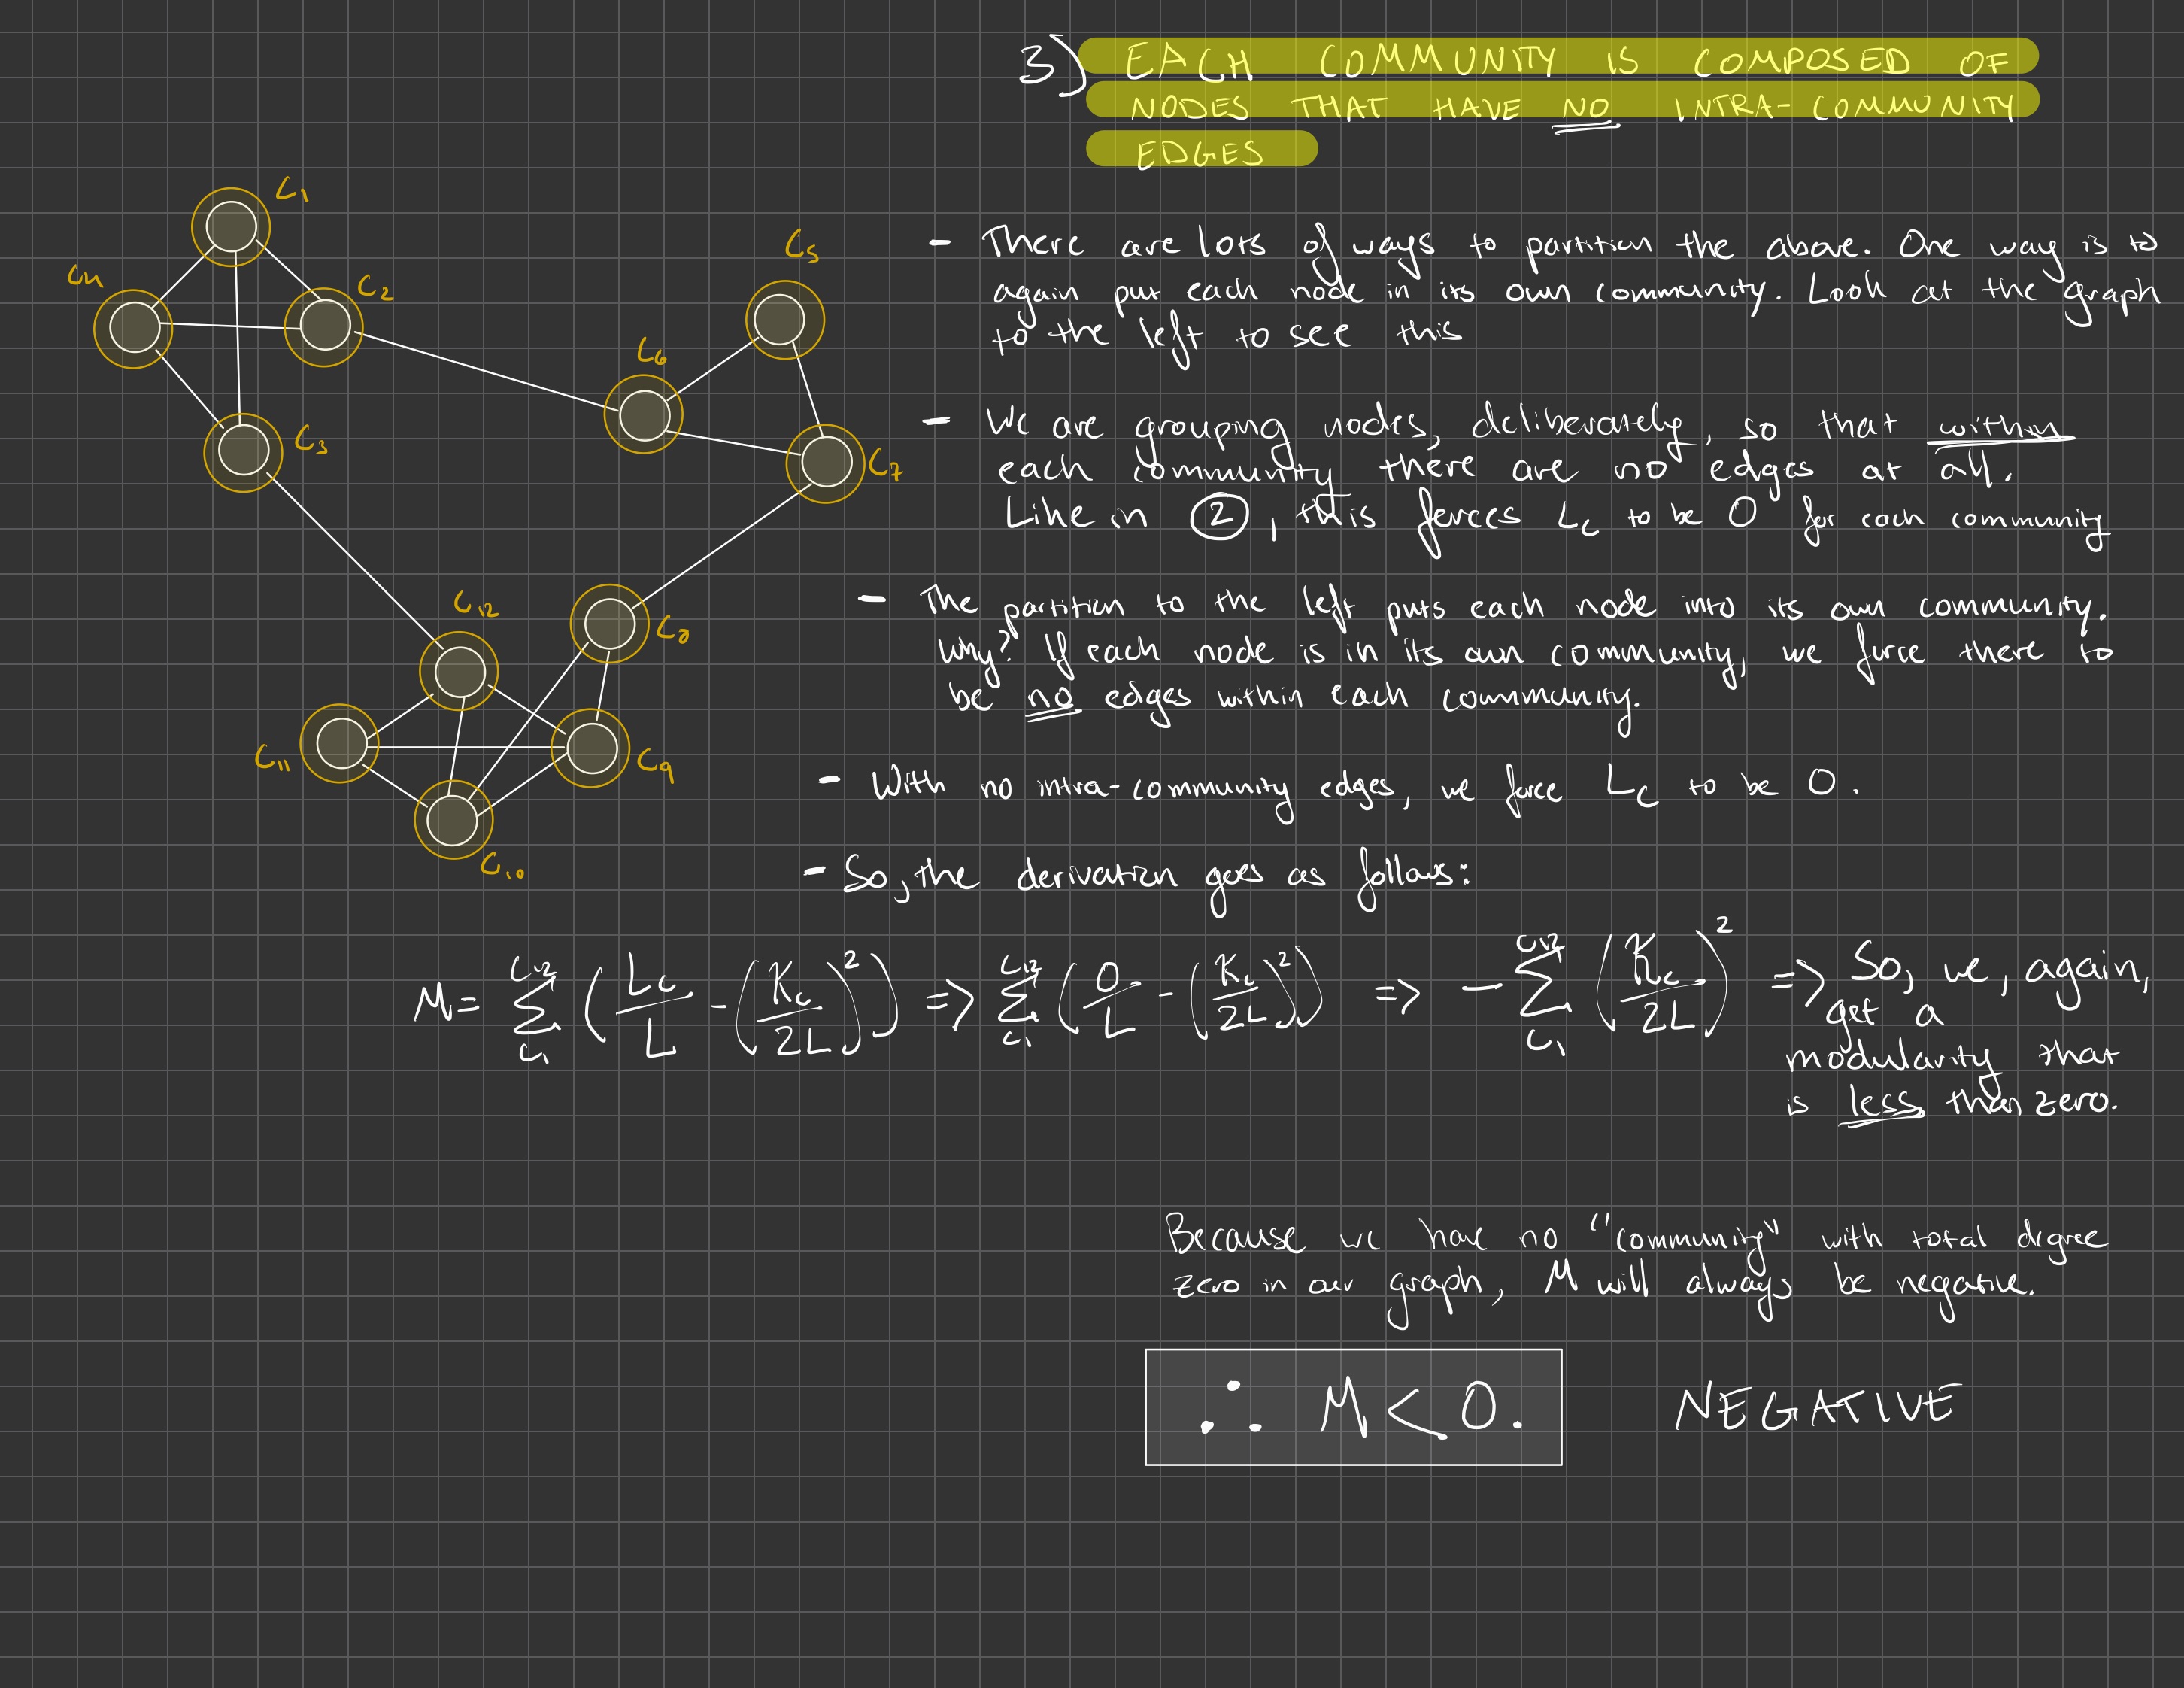 3) EACH COMMUNITY IS COMPOSED OF
NODES THAT HAVE NO INTRA-COMMUNITY
EDGES
C1
C4
C2
C3
C5
C6
C7
C12
C8
C11
C9
C10
- There are lots of ways to partition the above. One way is to
again put each node in its own community. Look at the graph
to the left to see this
- We are grouping nodes, deliberately, so that within
each community there are no edges at all.
Like in ②, this forces Lc to be 0 for each community
- The partition to the left puts each node into its own community.
Why? If each node is in its own community, we force there to
be no edges within each community.
- With no intra-community edges, we force Lc to be 0.
- So, the derivation goes as follows:
M = Σ_{C1}^{C12} (Lc/L - (Kc/2L)²) => Σ_{C1}^{C12} (0/L - (Kc/2L)²) => - Σ_{C1}^{C12} (Kc/2L)² => So, we, again,
get a
modularity that
is less than zero.
Because we have no "community" with total degree
zero in our graph, M will always be negative.
∴ M < 0. NEGATIVE